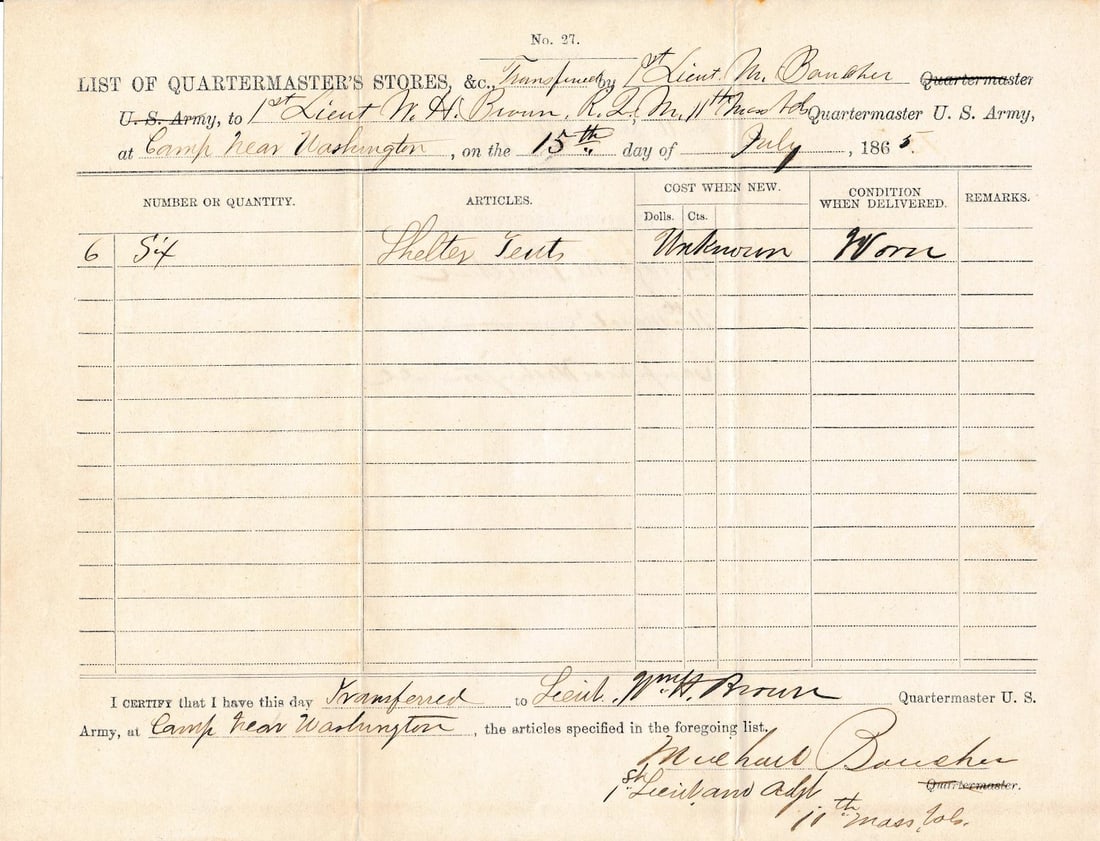 No. 27.
LIST OF QUARTERMASTER'S STORES, &c., Transferred by 1st Lieut. M. Boucher Quartermaster
U. S. Army, to 1st Lieut W. H. Brown, R. Q. M. 11th Mass Vols Quartermaster U. S. Army,
at Camp Near Washington, on the 15th day of July, 1865.
NUMBER OR QUANTITY. ARTICLES. COST WHEN NEW. CONDITION WHEN DELIVERED. REMARKS.
Dolls. Cts.
6 Six Shelter Tents Unknown Worn
I CERTIFY that I have this day Transferred to Lieut. Wm H. Brown Quartermaster U. S.
Army, at Camp Near Washington, the articles specified in the foregoing list.
Michael Boucher
1st Lieut and Adjt Quartermaster.
11th Mass Vols.